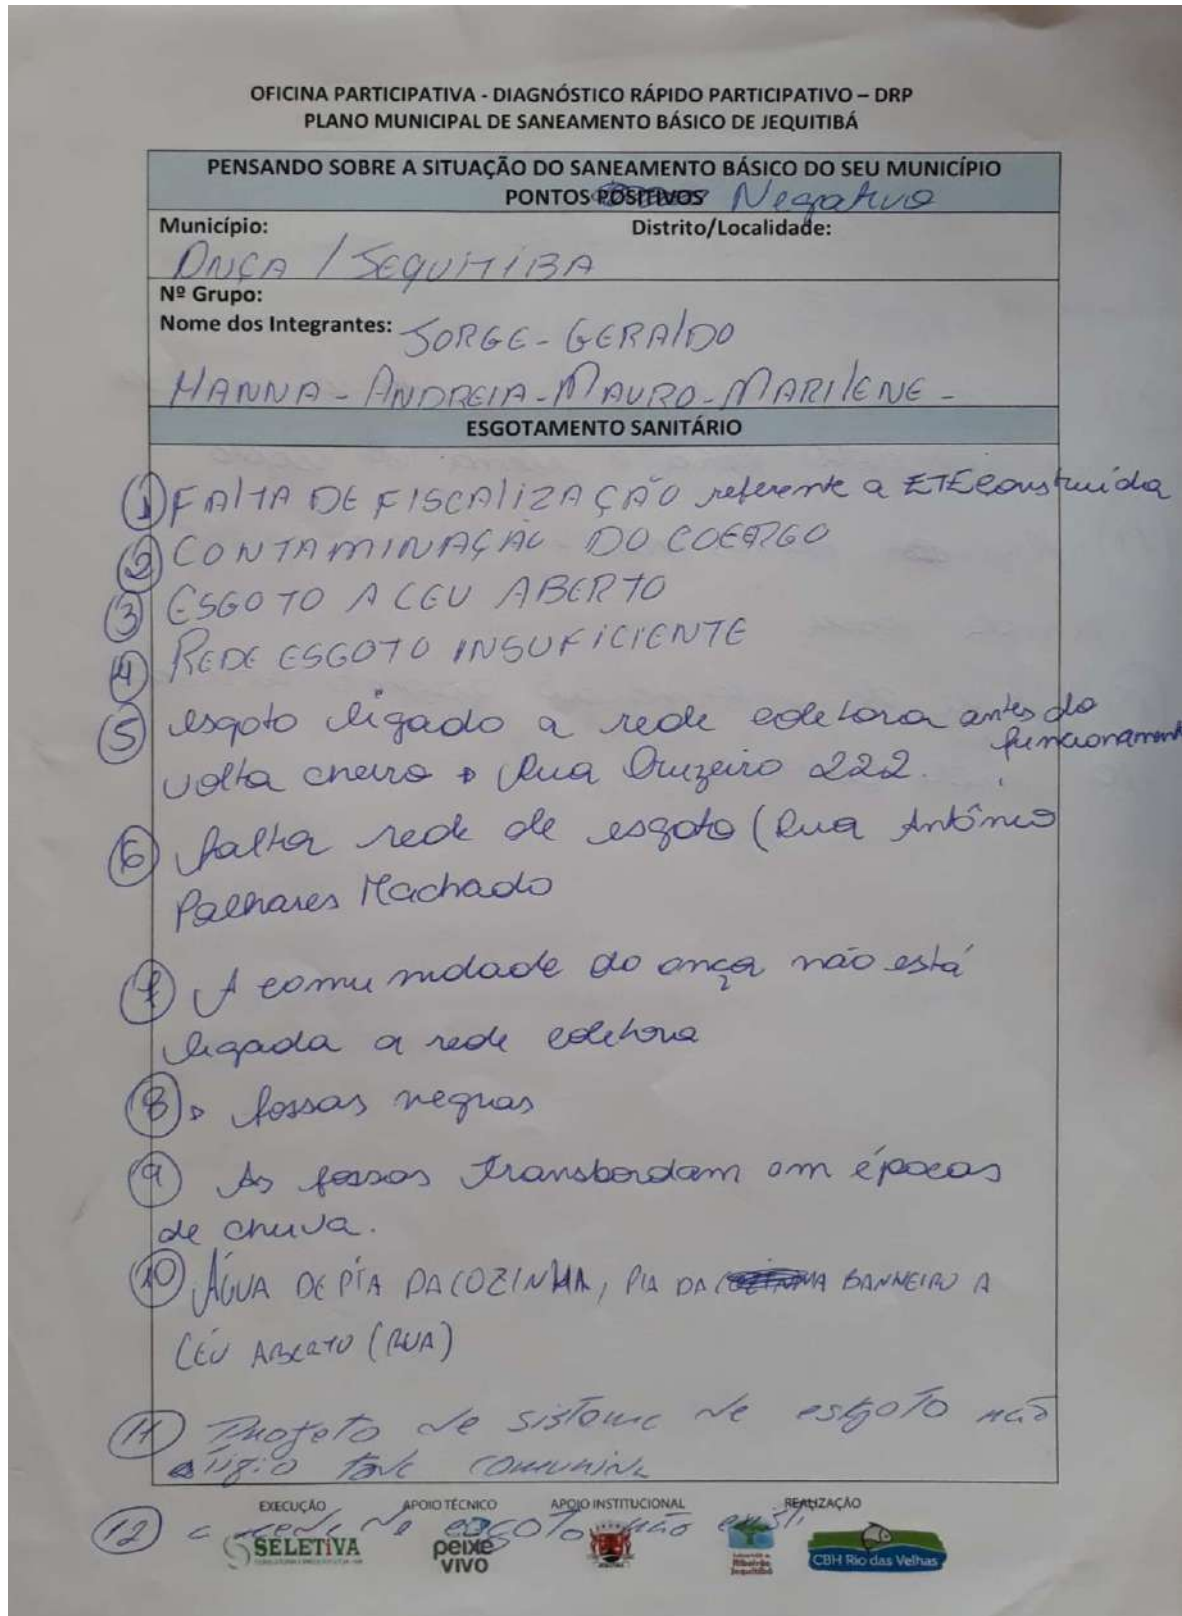 OFICINA PARTICIPATIVA - DIAGNÓSTICO RÁPIDO PARTICIPATIVO – DRP
PLANO MUNICIPAL DE SANEAMENTO BÁSICO DE JEQUITIBÁ
PENSANDO SOBRE A SITUAÇÃO DO SANEAMENTO BÁSICO DO SEU MUNICÍPIO
PONTOS POSITIVOS Negativo
Município: Distrito/Localidade:
ONÇA / JEQUITIBA
Nº Grupo:
Nome dos Integrantes: JORGE - GERALDO
HANNA - ANDREIA - MAURO - MARILENE -
ESGOTAMENTO SANITÁRIO
1 FALTA DE FISCALIZAÇÃO referente a ETE construída
2 CONTAMINAÇÃO DO CORRGO
3 ESGOTO A CEU ABERTO
4 REDE ESGOTO INSUFICIENTE
5 esgoto ligado a rede coletora antes do funcionament
volta cheiro Rua Cruzeiro 222.
6 falta rede de esgoto (Rua Antônio
Palhares Machado
7 A comunidade do onça não está
ligada a rede coletora
8 fossas negras
9 As fossas transbordam em épocas
de chuva.
10 ÁGUA DE PIA DA COZINHA, PIA DA BANHEIRO A
CÉU ABERTO (RUA)
11 Projeto de sistema de esgoto não
EXECUÇÃO APOIO TÉCNICO APOIO INSTITUCIONAL REALIZAÇÃO
12 a rede de esgoto não
SELETIVA peixe vivo Ribeirão Jequitibá CBH Rio das Velhas